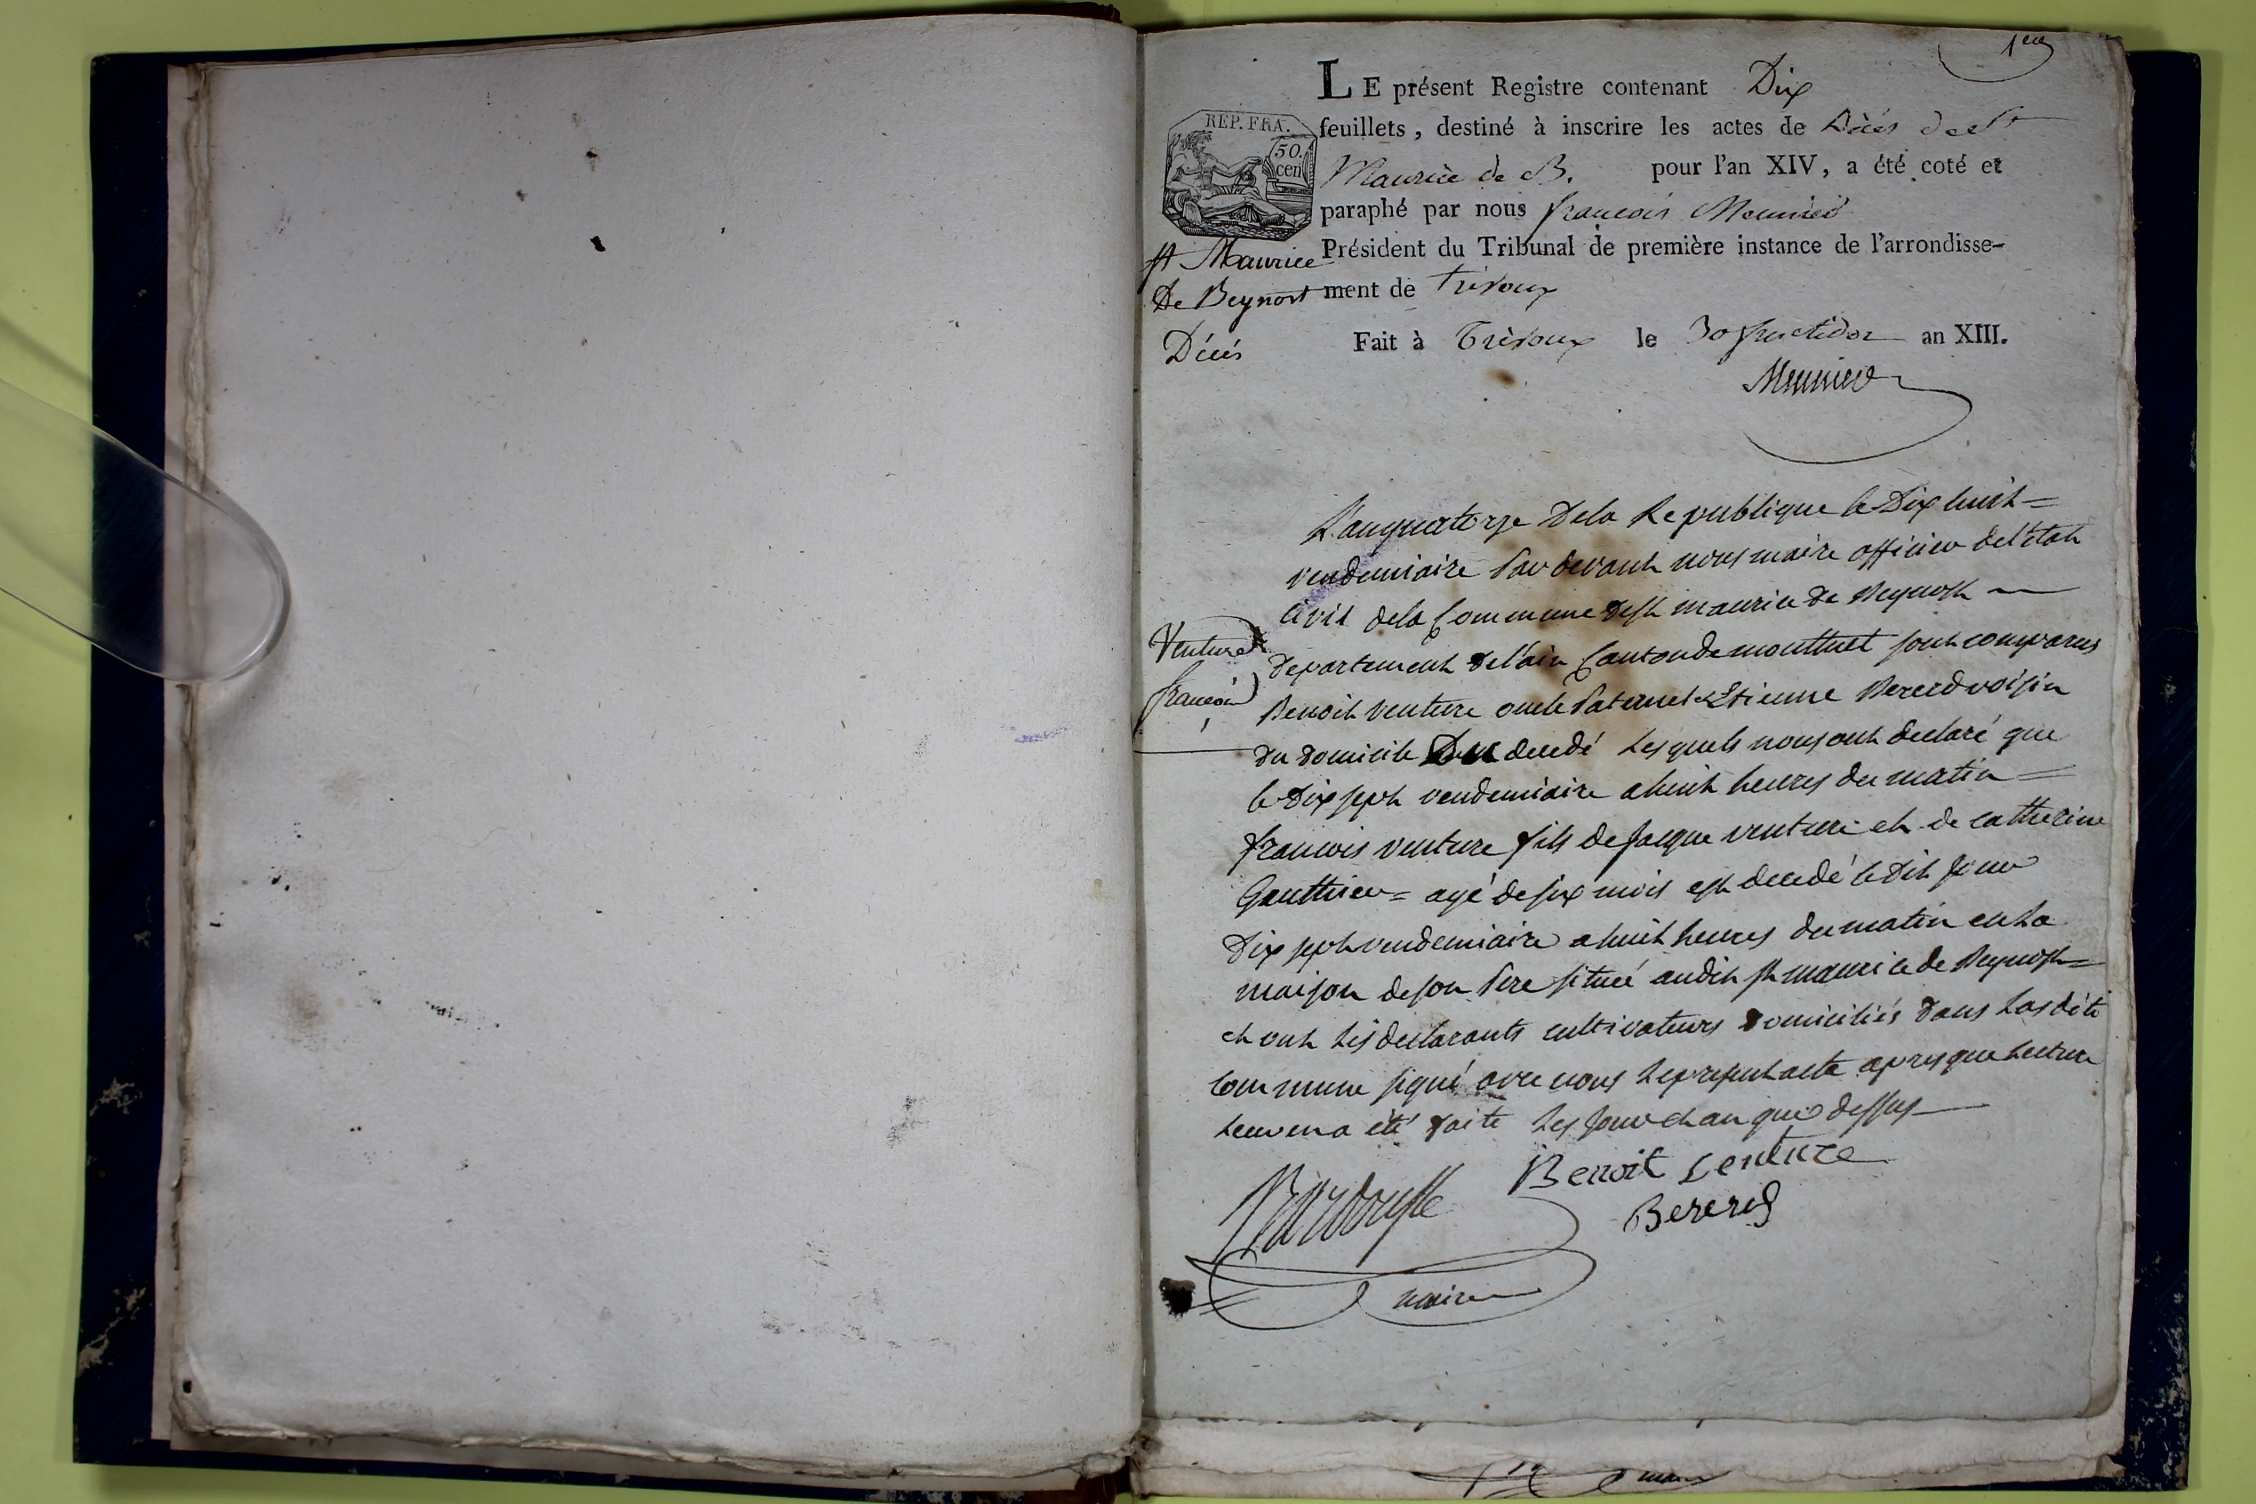 1er
LE présent Registre contenant Dix
feuillets, destiné à inscrire les actes de Décés de St
Maurice de B. pour l'an XIV, a été coté et
paraphé par nous françois Meunier
Président du Tribunal de première instance de l'arrondisse-
ment de Trévoux
Fait à Trévoux le 30 fructidor an XIII.
Meunier
REP. FRA.
50.
cen
St Maurice
De Beynost
Décés
L'an quatorze De la Republique le Dix huit =
vendemiaire Par devant nous maire officier de l'état
Civil de la Commune de st maurice de Beynost
Departement de l'ain Canton de montluel sont comparus
Benoit venture oncle Paternel & Etienne Bererd voisin
du domicile Du decedé Lesquels nous ont declaré que
le dix sept vendemiaire a huit heures du matin =
francois venture fils de Jacque venture et de catherine
Gauthier = agé de six mois est decedé le dit Jour
Dix sept vendemiaire a huit heures du matin en La
maison de son Pere situé audit st maurice de Beynost =
et ont Les declarants cultivateurs Domiciliés dans Lasdite
Commune signé avec nous Le present acte apres que Lecture
Leur en a été faite Les Jour et an que dessus
Venture
françois
Benoit Venture
Bererd
maire